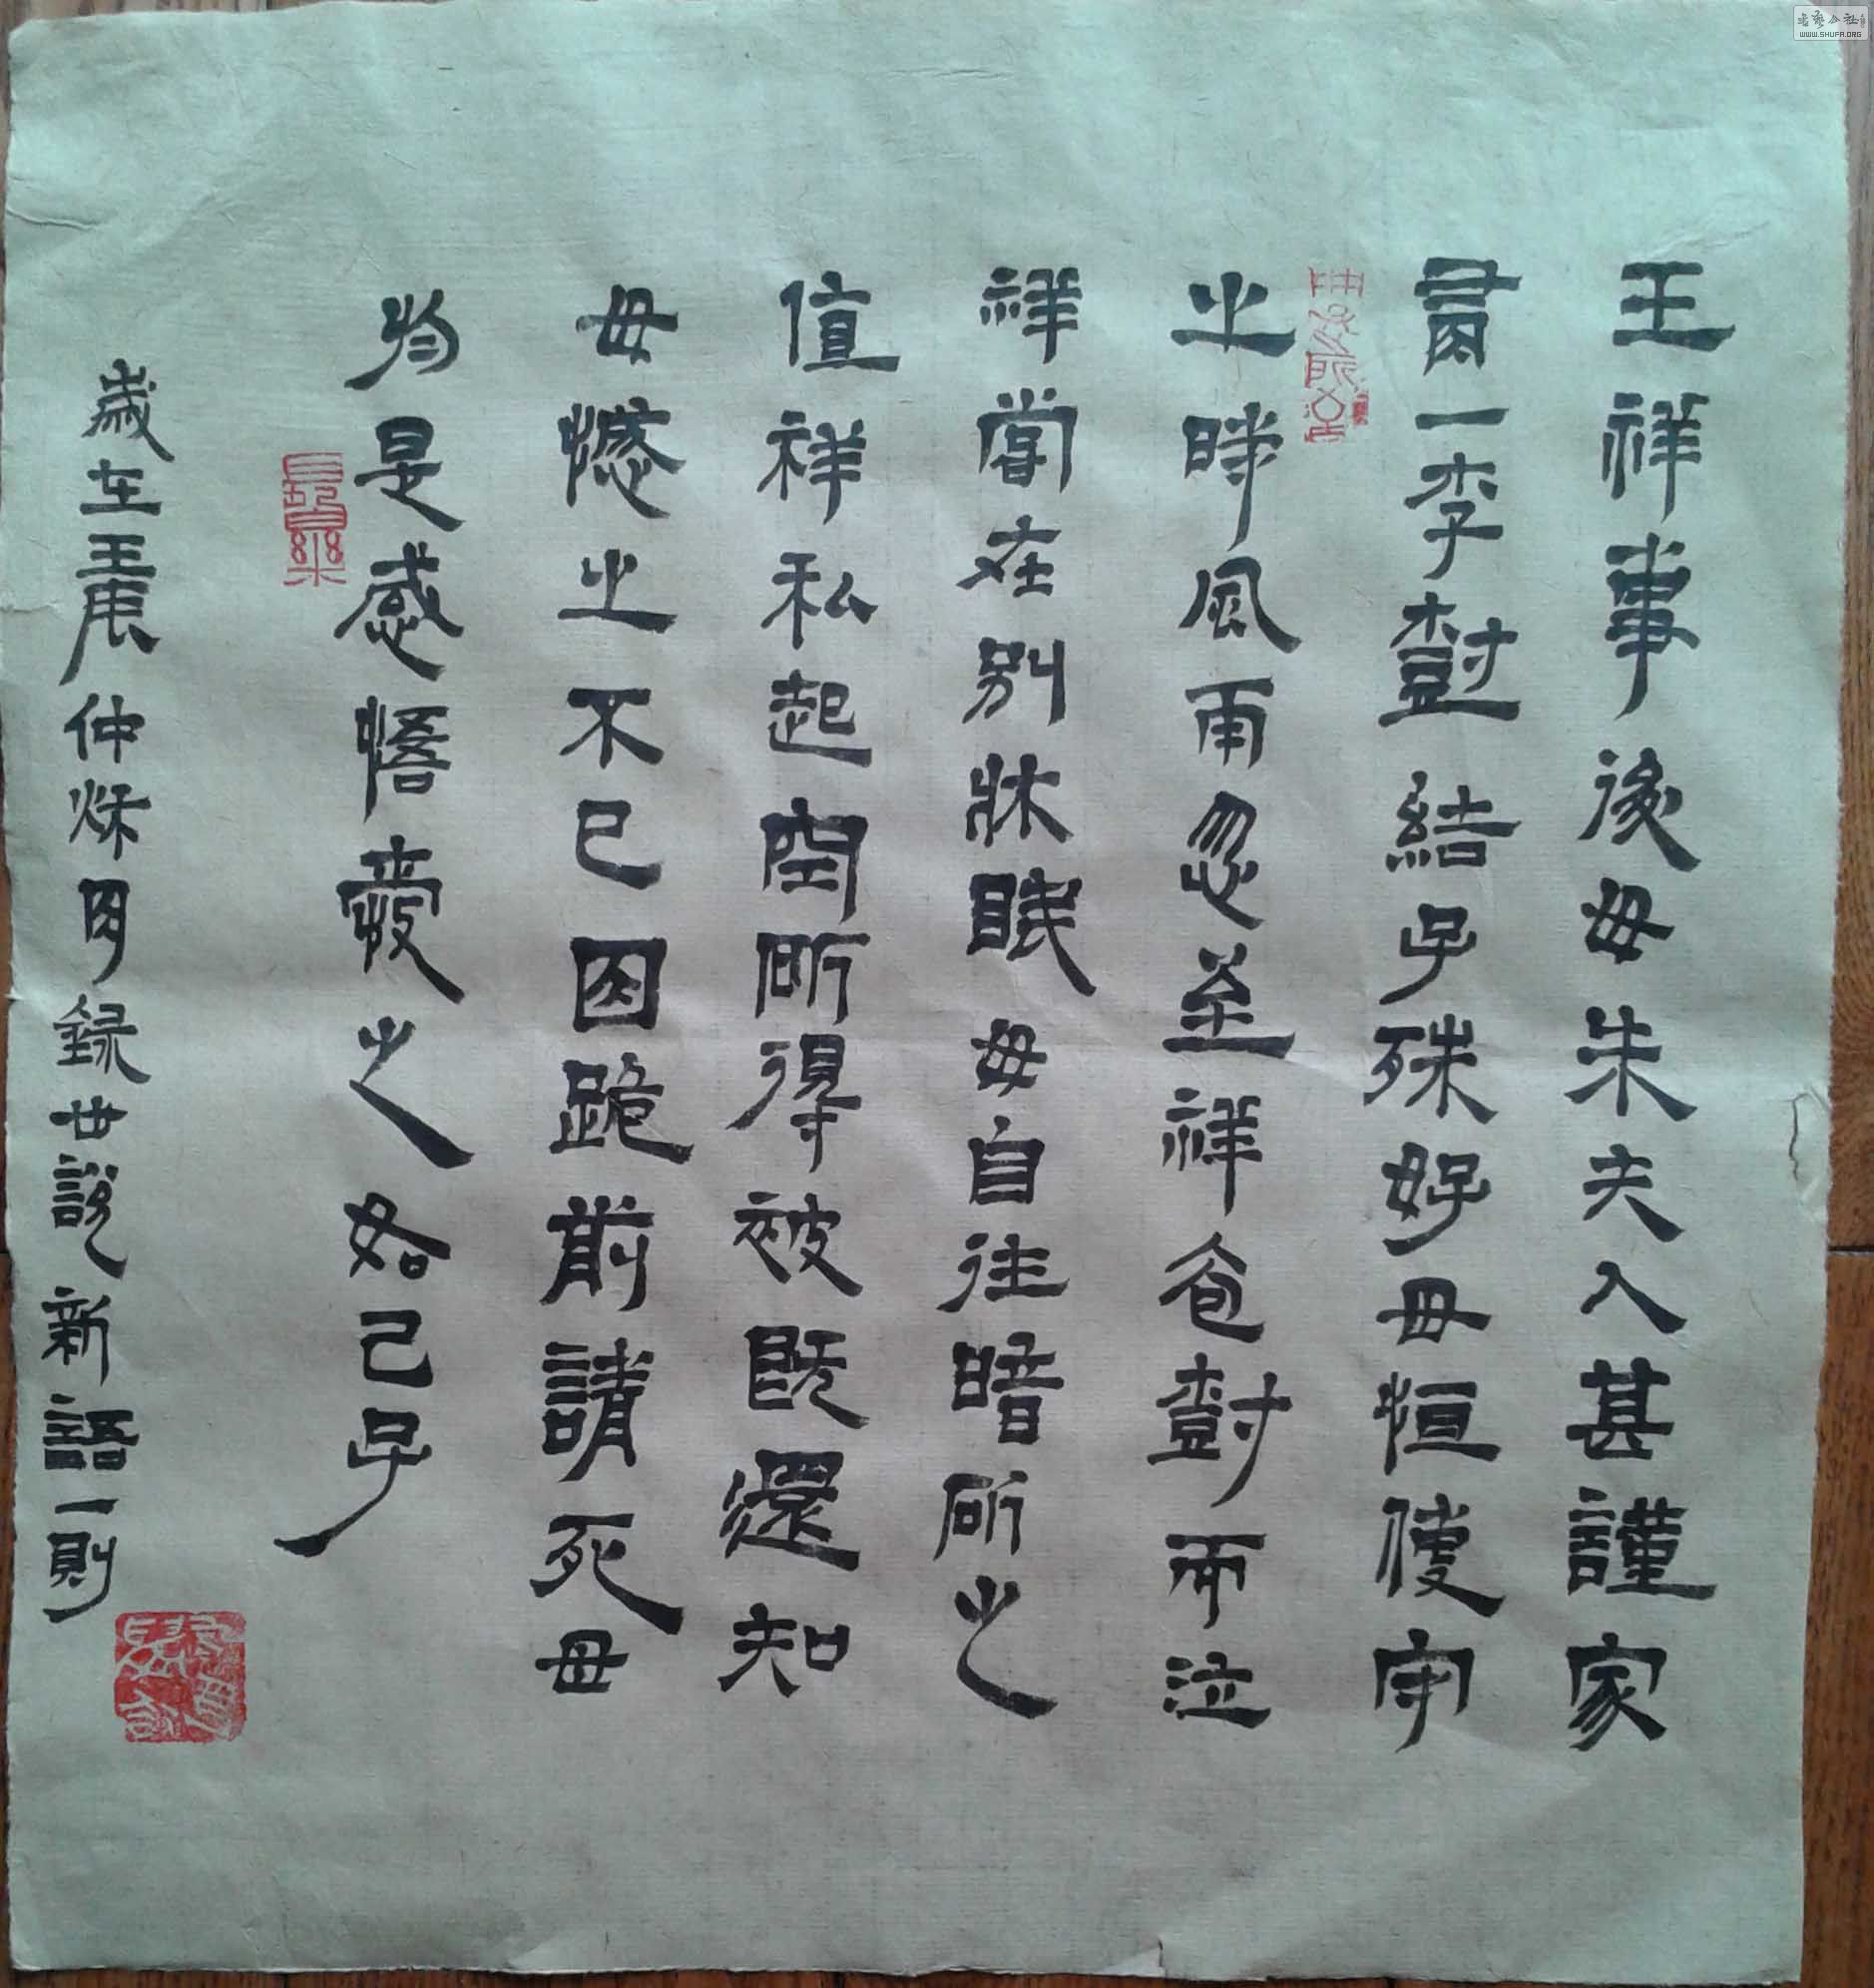 王祥事後母朱夫人甚謹家
有一李樹結子殊好母恒使守
之時風雨忽至祥抱樹而泣
祥嘗在別牀眠母自往暗斫之
值祥私起空斫得被既還知
母憾之不已因跪前請死母
於是感悟愛之如己子
歲在壬辰仲秋月録世説新語一則
書藝公社
WWW.SHUFA.ORG